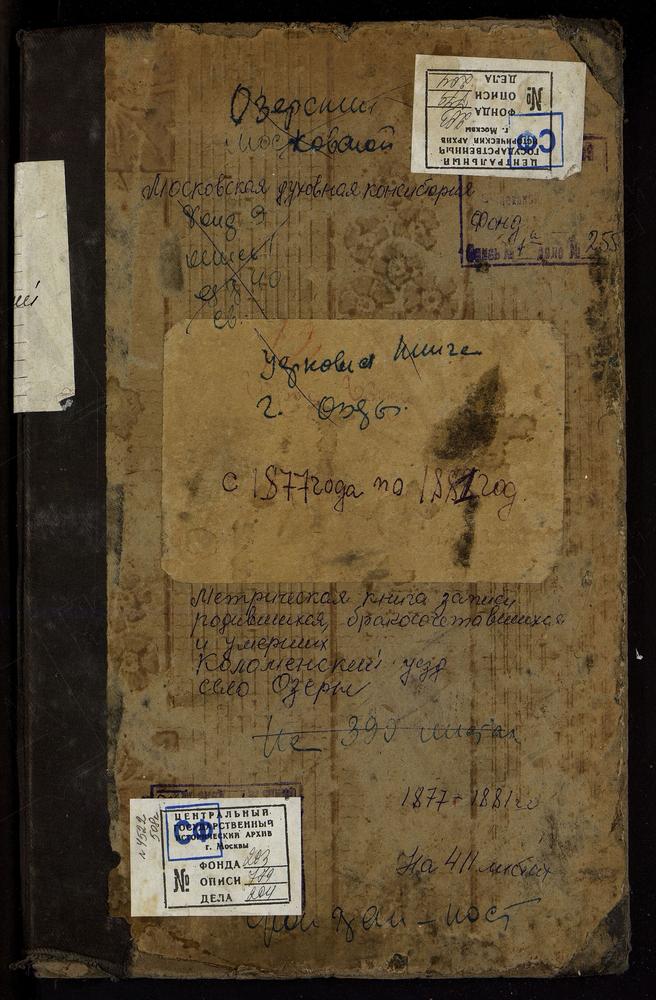 Озерский
Московской
Московская духовная консистория
ЦЕНТРАЛЬНЫЙ
ГОСУДАРСТВЕННЫЙ
ИСТОРИЧЕСКИЙ АРХИВ
г. Москвы
ФОНДА 203
№ ОПИСИ 779
ДЕЛА 204
СФ
Фонд
Опись № 1 а дело № 255
Фонд 9
опись 1
ед. 40
Церковная книга
г. Озёры.
с 1877 года по 1881 год
Метрическая книга записи
родившихся, бракосочетавшихся
и умерших
Коломенский уезд
село Озеры
На 390 листах
1877-1881 гг
На 411 листах
ЦЕНТРАЛЬНЫЙ
ГОСУДАРСТВЕННЫЙ
ИСТОРИЧЕСКИЙ АРХИВ
г. Москвы
ФОНДА 203
№ ОПИСИ 779
ДЕЛА 204
СФ
№ 4522